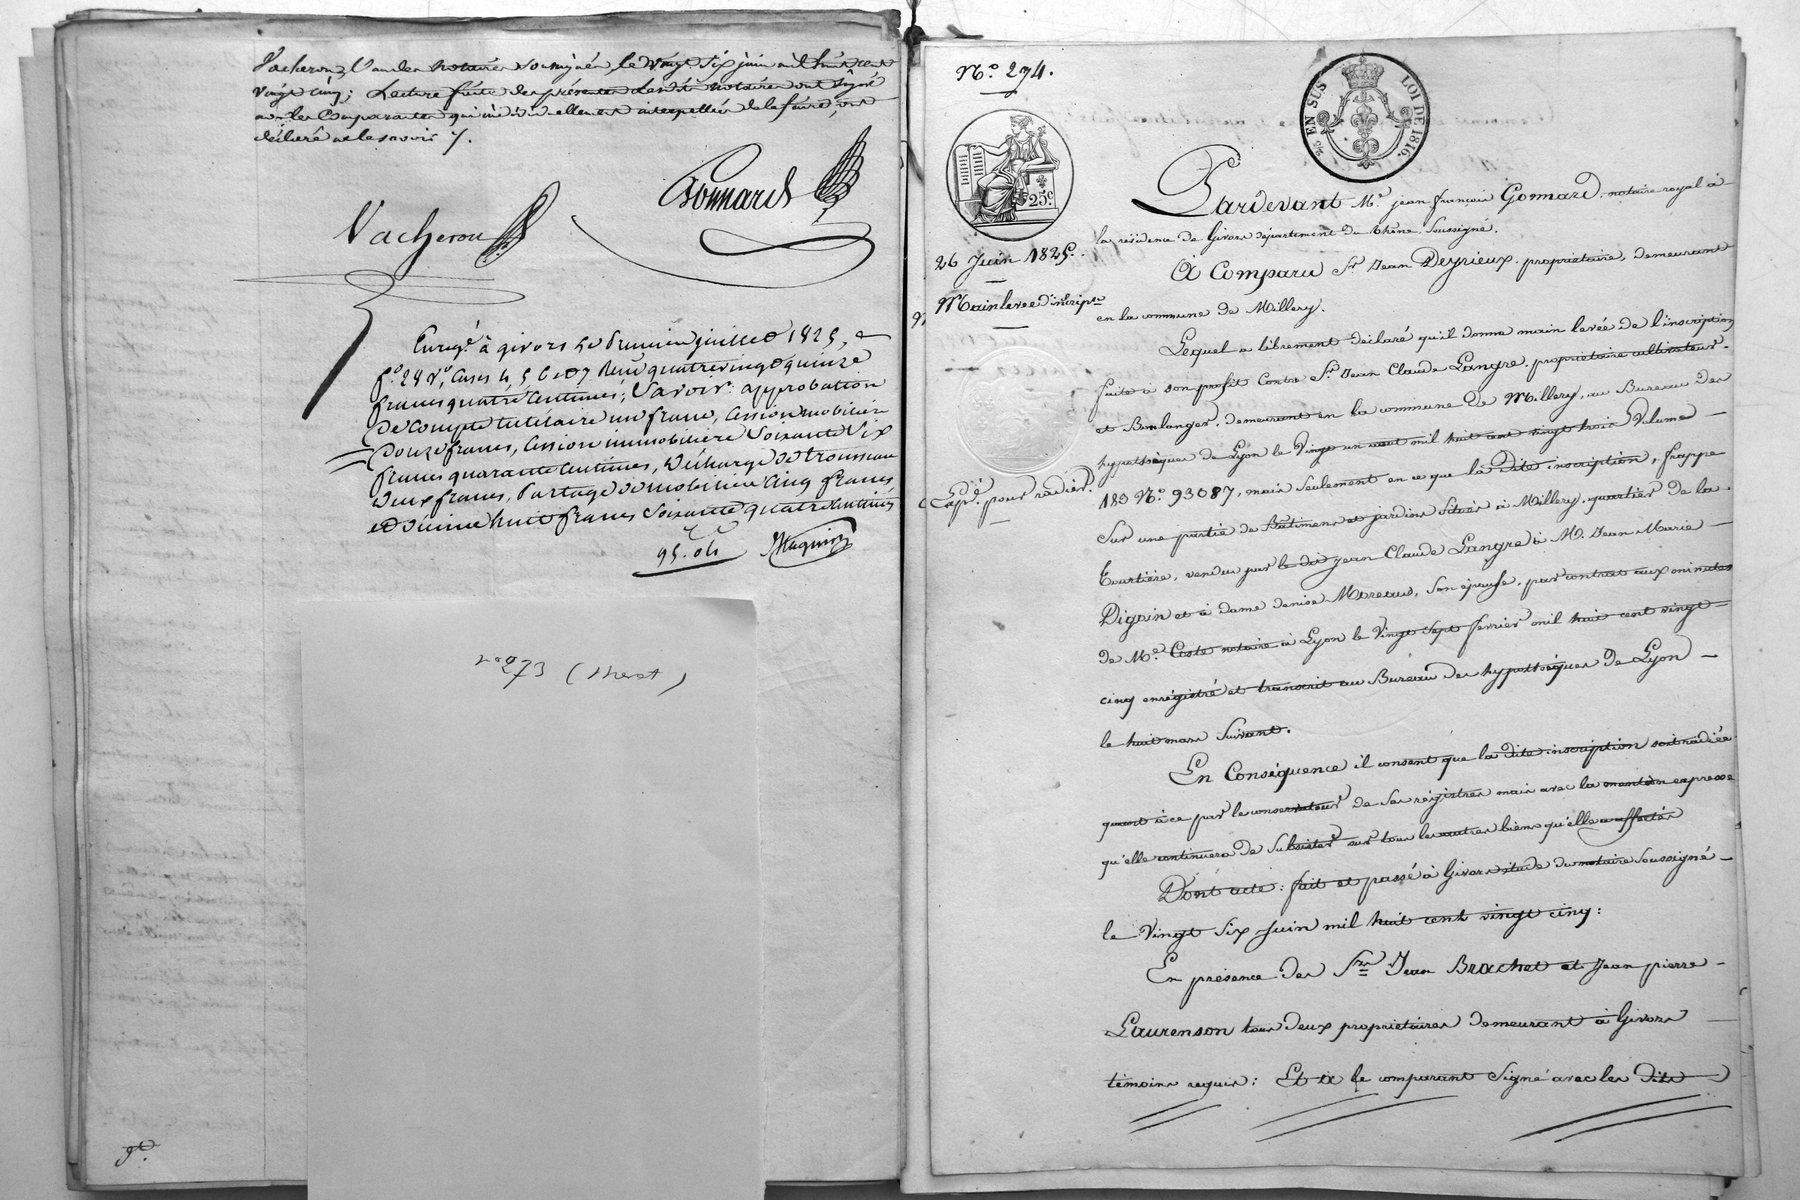 Vacheron, l'un des notaires soussignés, le vingt six juin mil huit cent
vingt cinq; Lecture faite des présentes lesdits notaires ont signé
non les Comparantes qui de ce enquises et interpellées de le faire, ont
déclaré ne le savoir ./.
Gonnard
Vacheron
Enregé. à givors le premier juillet 1825,
fo. 28 Vo. Cases 4, 5 6 et 7 Reçu quatrevingt quinze
francs quatre centimes; Savoir: approbation
de compte tutélaire un franc, cession mobilière
douze francs, cession immobilière Soixante Six
francs quarante centimes, décharge de trousseau
deux francs, partage de mobilier Cinq francs
et dixième huit francs Soixante quatre centimes
95. 04
no 273 (Meret)
No. 274.
25 EN SUS
LOI DE 1816.
25c
26 Juin 1825.
Mainlevée d'inscripon
Expé. pour radier.
Pardevant Me. jean françois Gonnard, notaire royal à
la résidence de Givors département du Rhône, Soussigné.
A Comparu Sr. Jean Deyrieux, propriétaire, demeurant
en la commune de Millery.
Lequel a librement déclaré qu'il donne main levée de l'inscription
faite à son profit Contre Sr. Jean Claude Langre, propriétaire cultivateur
et Boulanger, demeurant en la commune de Millery, au Bureau des
hypothèques de Lyon le Vingt un aout mil huit cent vingt trois Volume
180 No. 93087, mais seulement en ce que la dite inscription, frappe
Sur une partie de Bâtimens et jardins Situés à Millery, quartier de la
Tourtière, vendus par le dit jean Claude Langre à M. Jean Marie
Digoin et à dame denise Moretus, Son épouse, par contrat aux minutes
de Me. Coste notaire à Lyon le Vingt Sept février mil huit cent vingt
cinq enrégistré et transcrit au Bureau des hypothèques de Lyon
le huit mars Suivant.
En Conséquence il consent que la dite inscription soit radiée
quant à ce par le conservateur de Ses régistres mais avec la mention expresse
qu'elle continuera de Subsister sur tous les autres biens qu'elle a affectés
Dont acte: fait et passé à Givors étude du notaire Soussigné
le Vingt Six Juin mil huit cent vingt cinq:
En présence des Srs. Jean Brachet et Jean pierre
Laurenson tous deux propriétaires demeurant à Givors
témoins requis: Et a le comparant Signé avec les dits